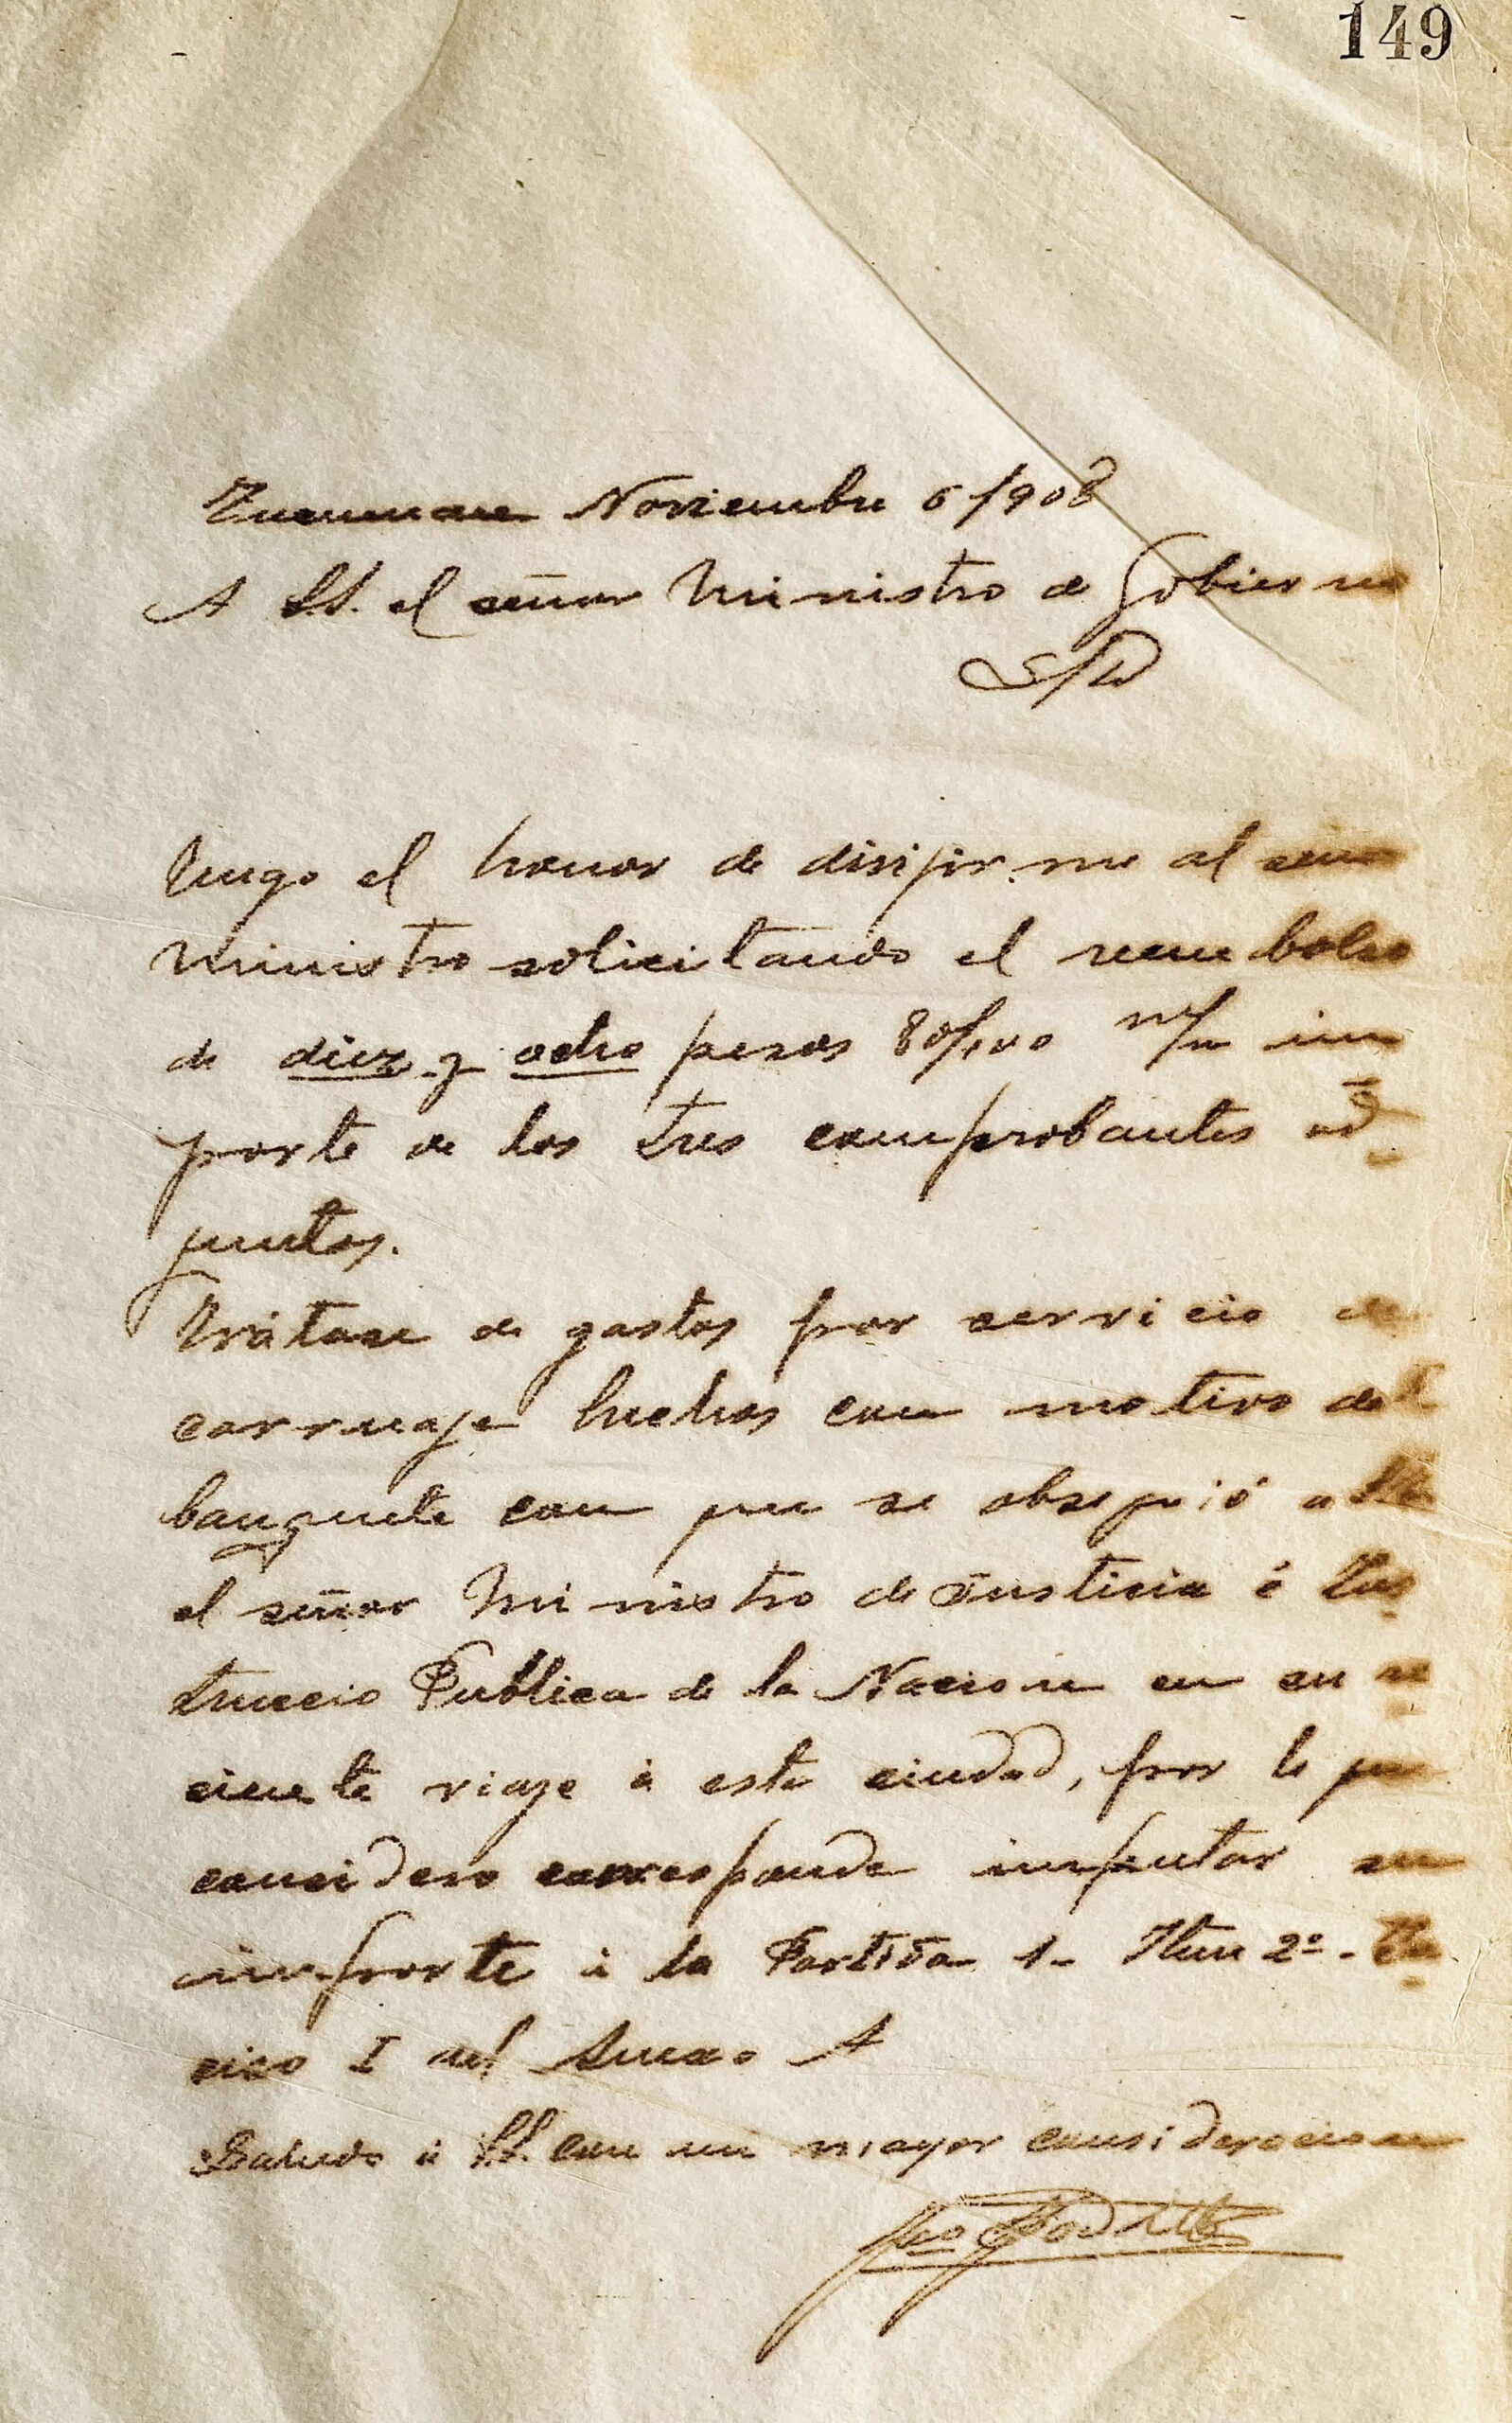 149
Tucuman Noviembre 6/908
A S.S. el señor Ministro de Gobierno
S/D
Tengo el honor de dirijir-me al señor
Ministro solicitando el reembolso
de diez y ocho pesos 80/100 m/n im
porte de los tres comprobantes ad
juntos.
Trátase de gastos por servicio de
carruaje hechos con motivo del
banquete con que se obsequió a S.S.
el señor Ministro de Justicia é Ins
truccio Publica de la Nacion en su re
ciente viaje á esta ciudad, por lo que
considero corresponde imputar su
importe á la Partida 1- Item 2º- In
ciso I del Anexo A
Saludo á S.S. con mi mayor consideracion